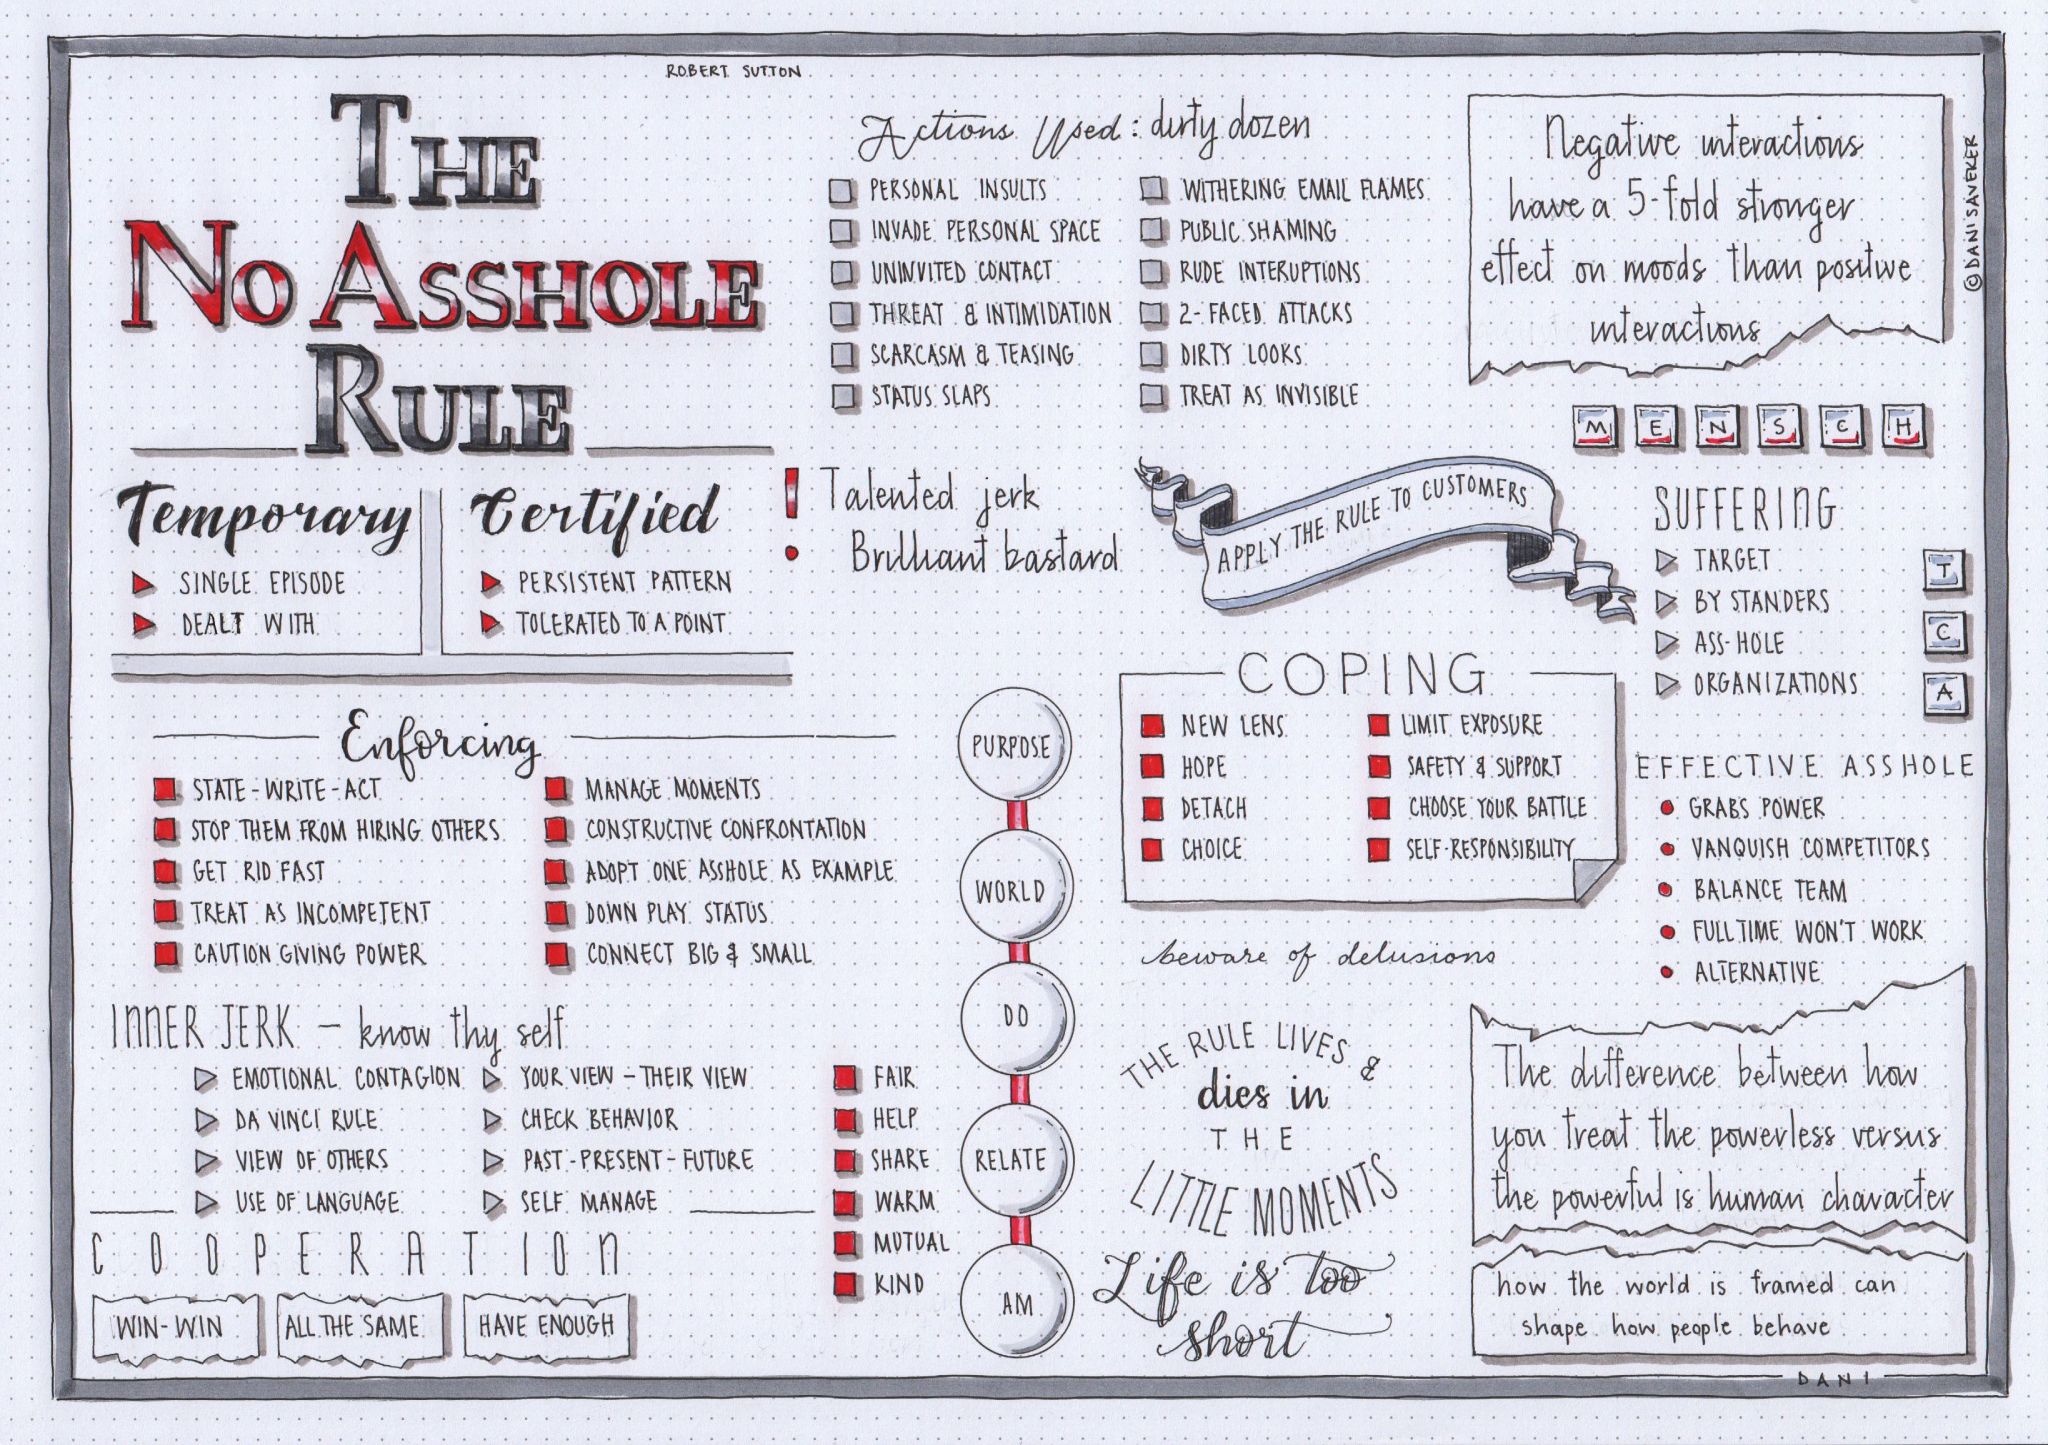 ROBERT SUTTON
THE
NO ASSHOLE
RULE
Temporary
SINGLE EPISODE
DEALT WITH
Certified
PERSISTENT PATTERN
TOLERATED TO A POINT
Actions Used: dirty dozen
PERSONAL INSULTS
INVADE PERSONAL SPACE
UNINVITED CONTACT
THREAT & INTIMIDATION
SCARCASM & TEASING
STATUS SLAPS
WITHERING EMAIL FLAMES
PUBLIC SHAMING
RUDE INTERUPTIONS
2-FACED ATTACKS
DIRTY LOOKS
TREAT AS INVISIBLE
Negative interactions
have a 5-fold stronger
effect on moods than positive
interactions
©DANISAVEKER
MENSCH
! Talented jerk
Brilliant bastard
APPLY THE RULE TO CUSTOMERS
SUFFERING
TARGET
BY STANDERS
ASS-HOLE
ORGANIZATIONS
T
C
A
Enforcing
STATE-WRITE-ACT
STOP THEM FROM HIRING OTHERS
GET RID FAST
TREAT AS INCOMPETENT
CAUTION GIVING POWER
MANAGE MOMENTS
CONSTRUCTIVE CONFRONTATION
ADOPT ONE ASSHOLE AS EXAMPLE
DOWN PLAY STATUS
CONNECT BIG & SMALL
PURPOSE
WORLD
DO
RELATE
AM
COPING
NEW LENS
HOPE
DETACH
CHOICE
LIMIT EXPOSURE
SAFETY & SUPPORT
CHOOSE YOUR BATTLE
SELF-RESPONSIBILITY
EFFECTIVE ASSHOLE
GRABS POWER
VANQUISH COMPETITORS
BALANCE TEAM
FULL TIME WON'T WORK
ALTERNATIVE
beware of delusions
INNER JERK - know thy self
EMOTIONAL CONTAGION
DA VINCI RULE
VIEW OF OTHERS
USE OF LANGUAGE
YOUR VIEW - THEIR VIEW
CHECK BEHAVIOR
PAST-PRESENT-FUTURE
SELF MANAGE
FAIR
HELP
SHARE
WARM
MUTUAL
KIND
THE RULE LIVES &
dies in
THE
LITTLE MOMENTS
Life is too
short
The difference between how
you treat the powerless versus
the powerful is human character
how the world is framed can
shape how people behave
COOPERATION
WIN-WIN
ALL THE SAME
HAVE ENOUGH
DANI